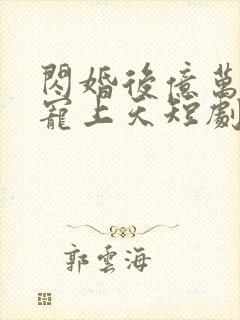 閃婚後億萬
寵上天短劇
郭雲海